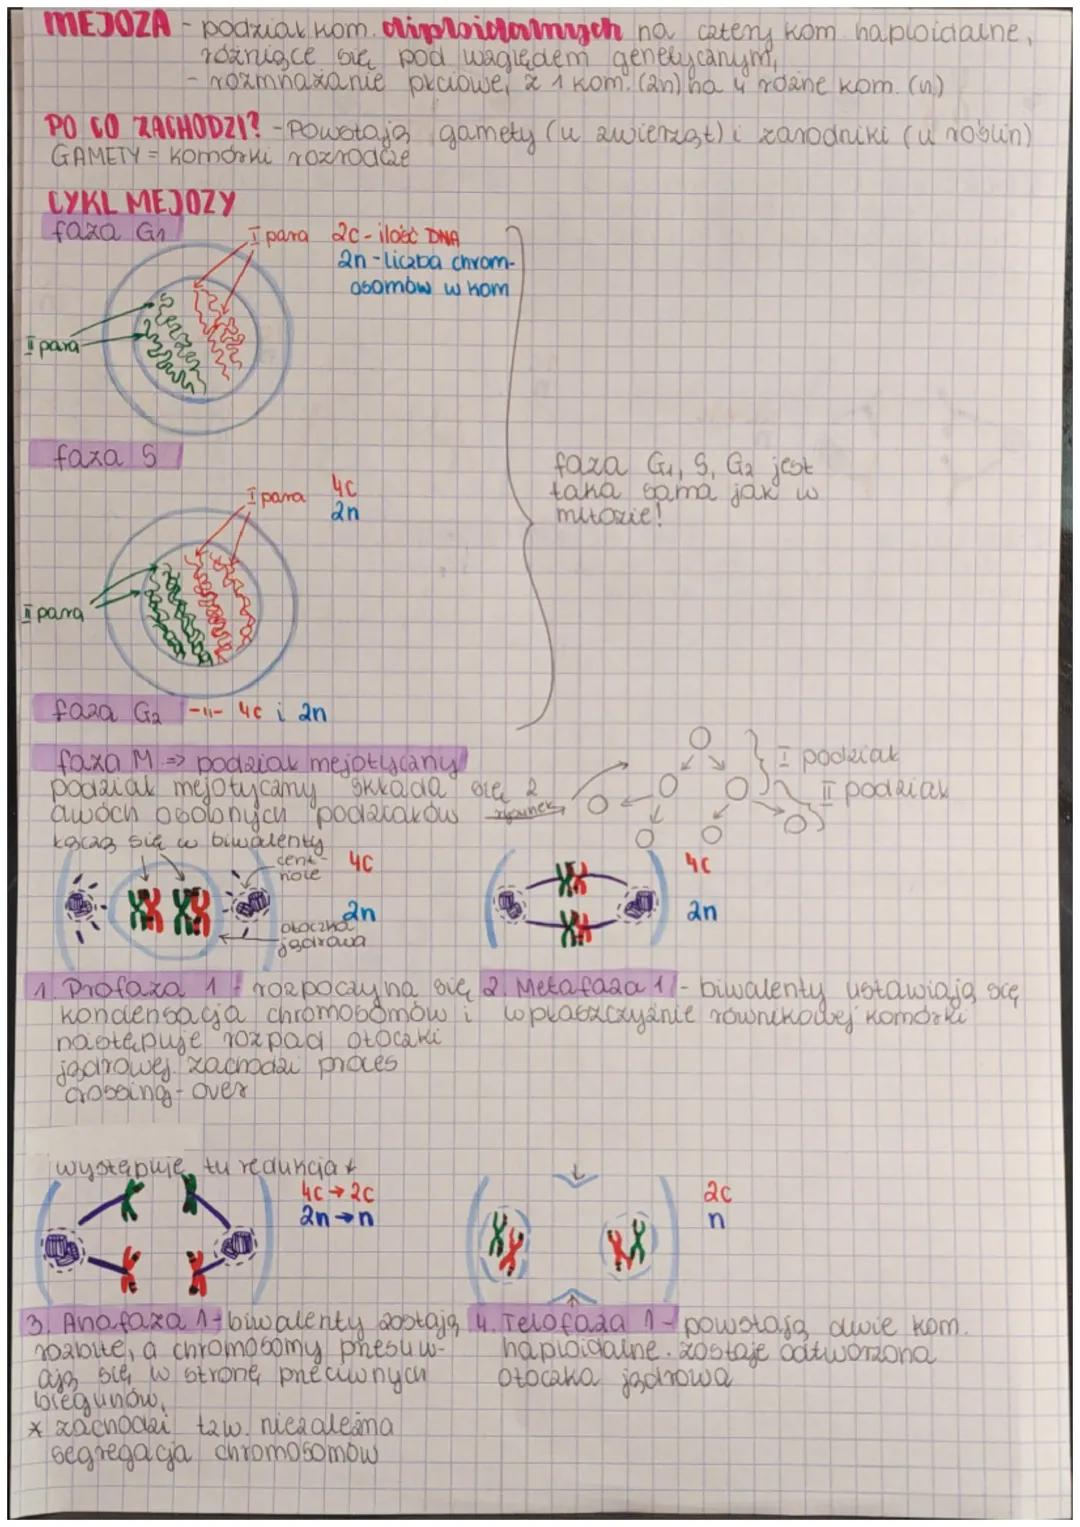 MEJOZA - podział kom. diploidalnych na cztery kom. haploidalne,
różniące się pod względem genetycznym,
- rozmnażanie płciowe, z 1 kom. (2n) na 4 różne kom. (n)
PO CO ZACHODZI? - Powstają gamety (u zwierząt) i zarodniki (u roślin)
GAMETY = komórki rozrodcze
CYKL MEJOZY
faza G1
I para
2c - ilość DNA
2n - liczba chrom-
osomów w kom
II para
faza S
I para
4c
2n
faza G1, S, G2 jest
taka sama jak w
mitozie!
II para
faza G2 -11- 4c i 2n
faza M => podział mejotyczny
podział mejotyczny składa się z
dwóch osobnych podziałów
I podział
II podział
łączą się w biwalenty
cent-
riole
4c
2n
otoczka
jądrowa
4c
2n
1. Profaza 1 - rozpoczyna się
kondensacja chromosomów i
następuje rozpad otoczki
jądrowej. zachodzi proces
crossing-over
2. Metafaza 1 - biwalenty ustawiają się
w płaszczyźnie równikowej komórki
występuje tu redukcja
4c → 2c
2n → n
2c
n
3. Anafaza 1 - biwalenty zostają
rozbite, a chromosomy przesuw-
ają się w stronę przeciwnych
biegunów,
* zachodzi tzw. niezależna
segregacja chromosomów
4. Telofaza 1 - powstają dwie kom.
haploidalne. zostaje odtworzona
otoczka jądrowa